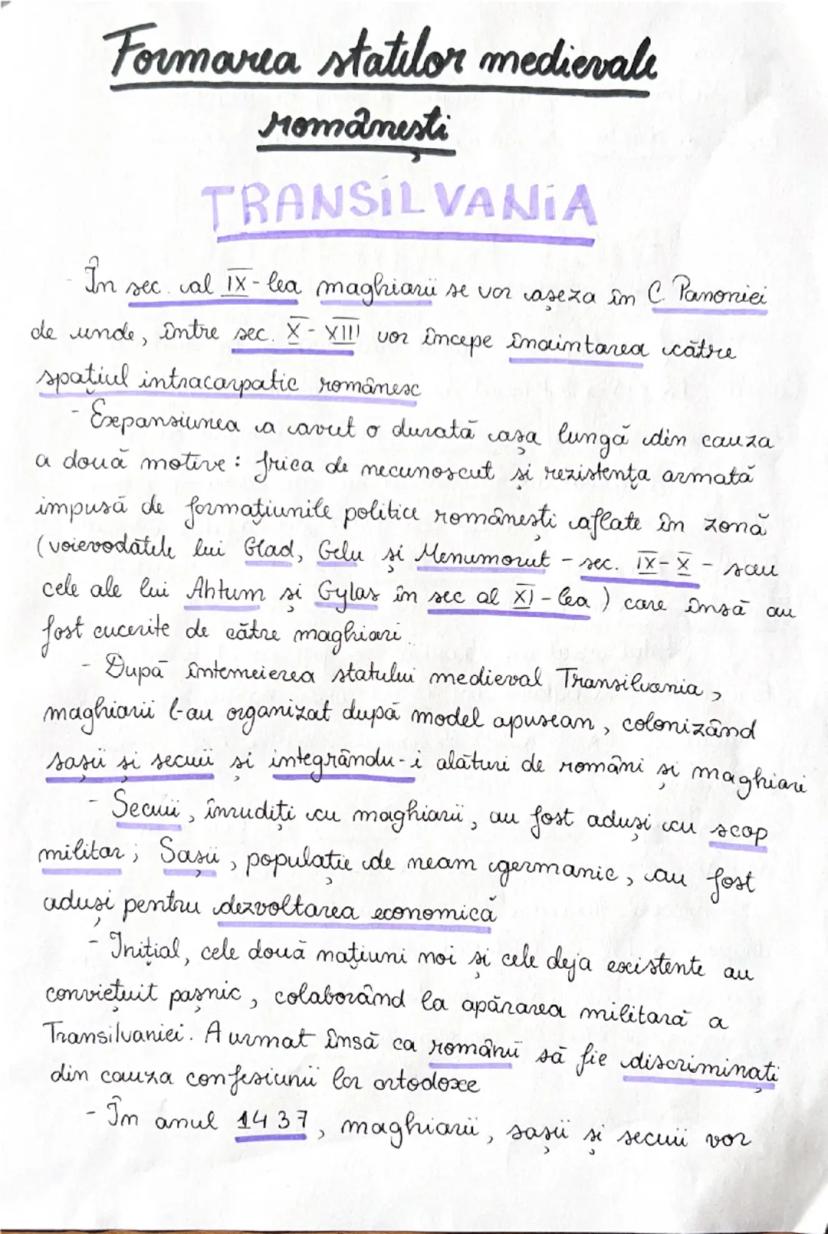 Formarea statelor medievale
românești
TRANSILVANIA
- În sec. al IX-lea maghiarii se vor așeza în C. Panoniei
de unde, între sec. X-XIII vor începe înaintarea către
spațiul intracarpatic românesc
- Expansiunea a avut o durată așa lungă din cauza
a două motive: frica de necunoscut și rezistența armată
impusă de formațiunile politice românești aflate în zonă
(voievodatele lui Glad, Gelu și Menumorut - sec. IX-X - sau
cele ale lui Ahtum și Gylas în sec al XI-lea) care însă au
fost cucerite de către maghiari.
- După întemeierea statului medieval Transilvania,
maghiarii l-au organizat după model apusean, colonizând
sașii și secuii și integrându-i alături de români și maghiari
- Secuii, înrudiți cu maghiarii, au fost aduși cu scop
militar; Sașii, populație de neam germanic, au fost
aduși pentru dezvoltarea economică
- Inițial, cele două națiuni noi și cele deja existente au
conviețuit pașnic, colaborând la apărarea militară a
Transilvaniei. A urmat însă ca românii să fie discriminați
din cauza confesiunii lor ortodoxe
- În anul 1437, maghiarii, sașii și secuii vor